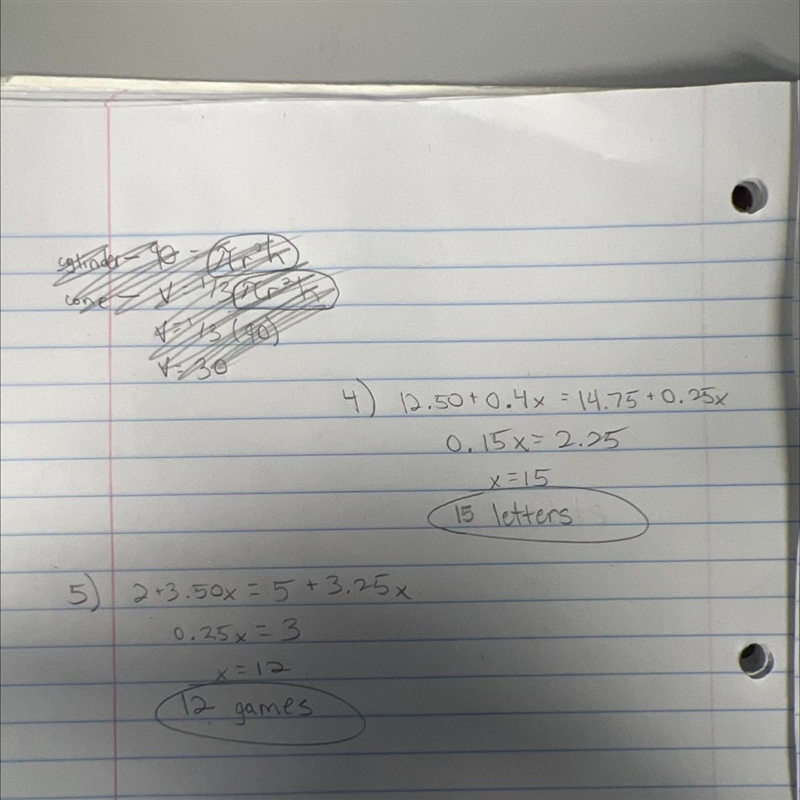 cylinder - 90 = πr²h
cone - V = 1/3 πr²h
V = 1/3 (90)
V = 30
4) 12.50 + 0.4x = 14.75 + 0.25x
0.15x = 2.25
x = 15
15 letters
5) 2 + 3.50x = 5 + 3.25x
0.25x = 3
x = 12
12 games